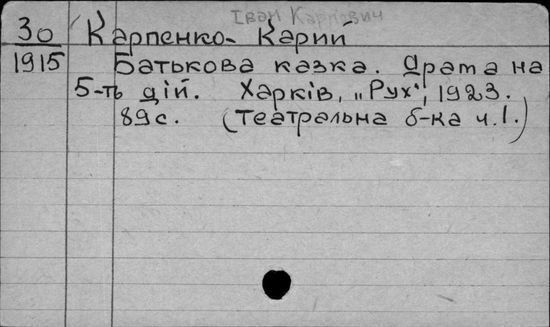 Іван Карпович
30 Карпенко-Карий
1915 Батькова казка. Драта на
5-ть дій. Харків, „Рух", 1923.
89с. (Театральна б-ка ч.1.)